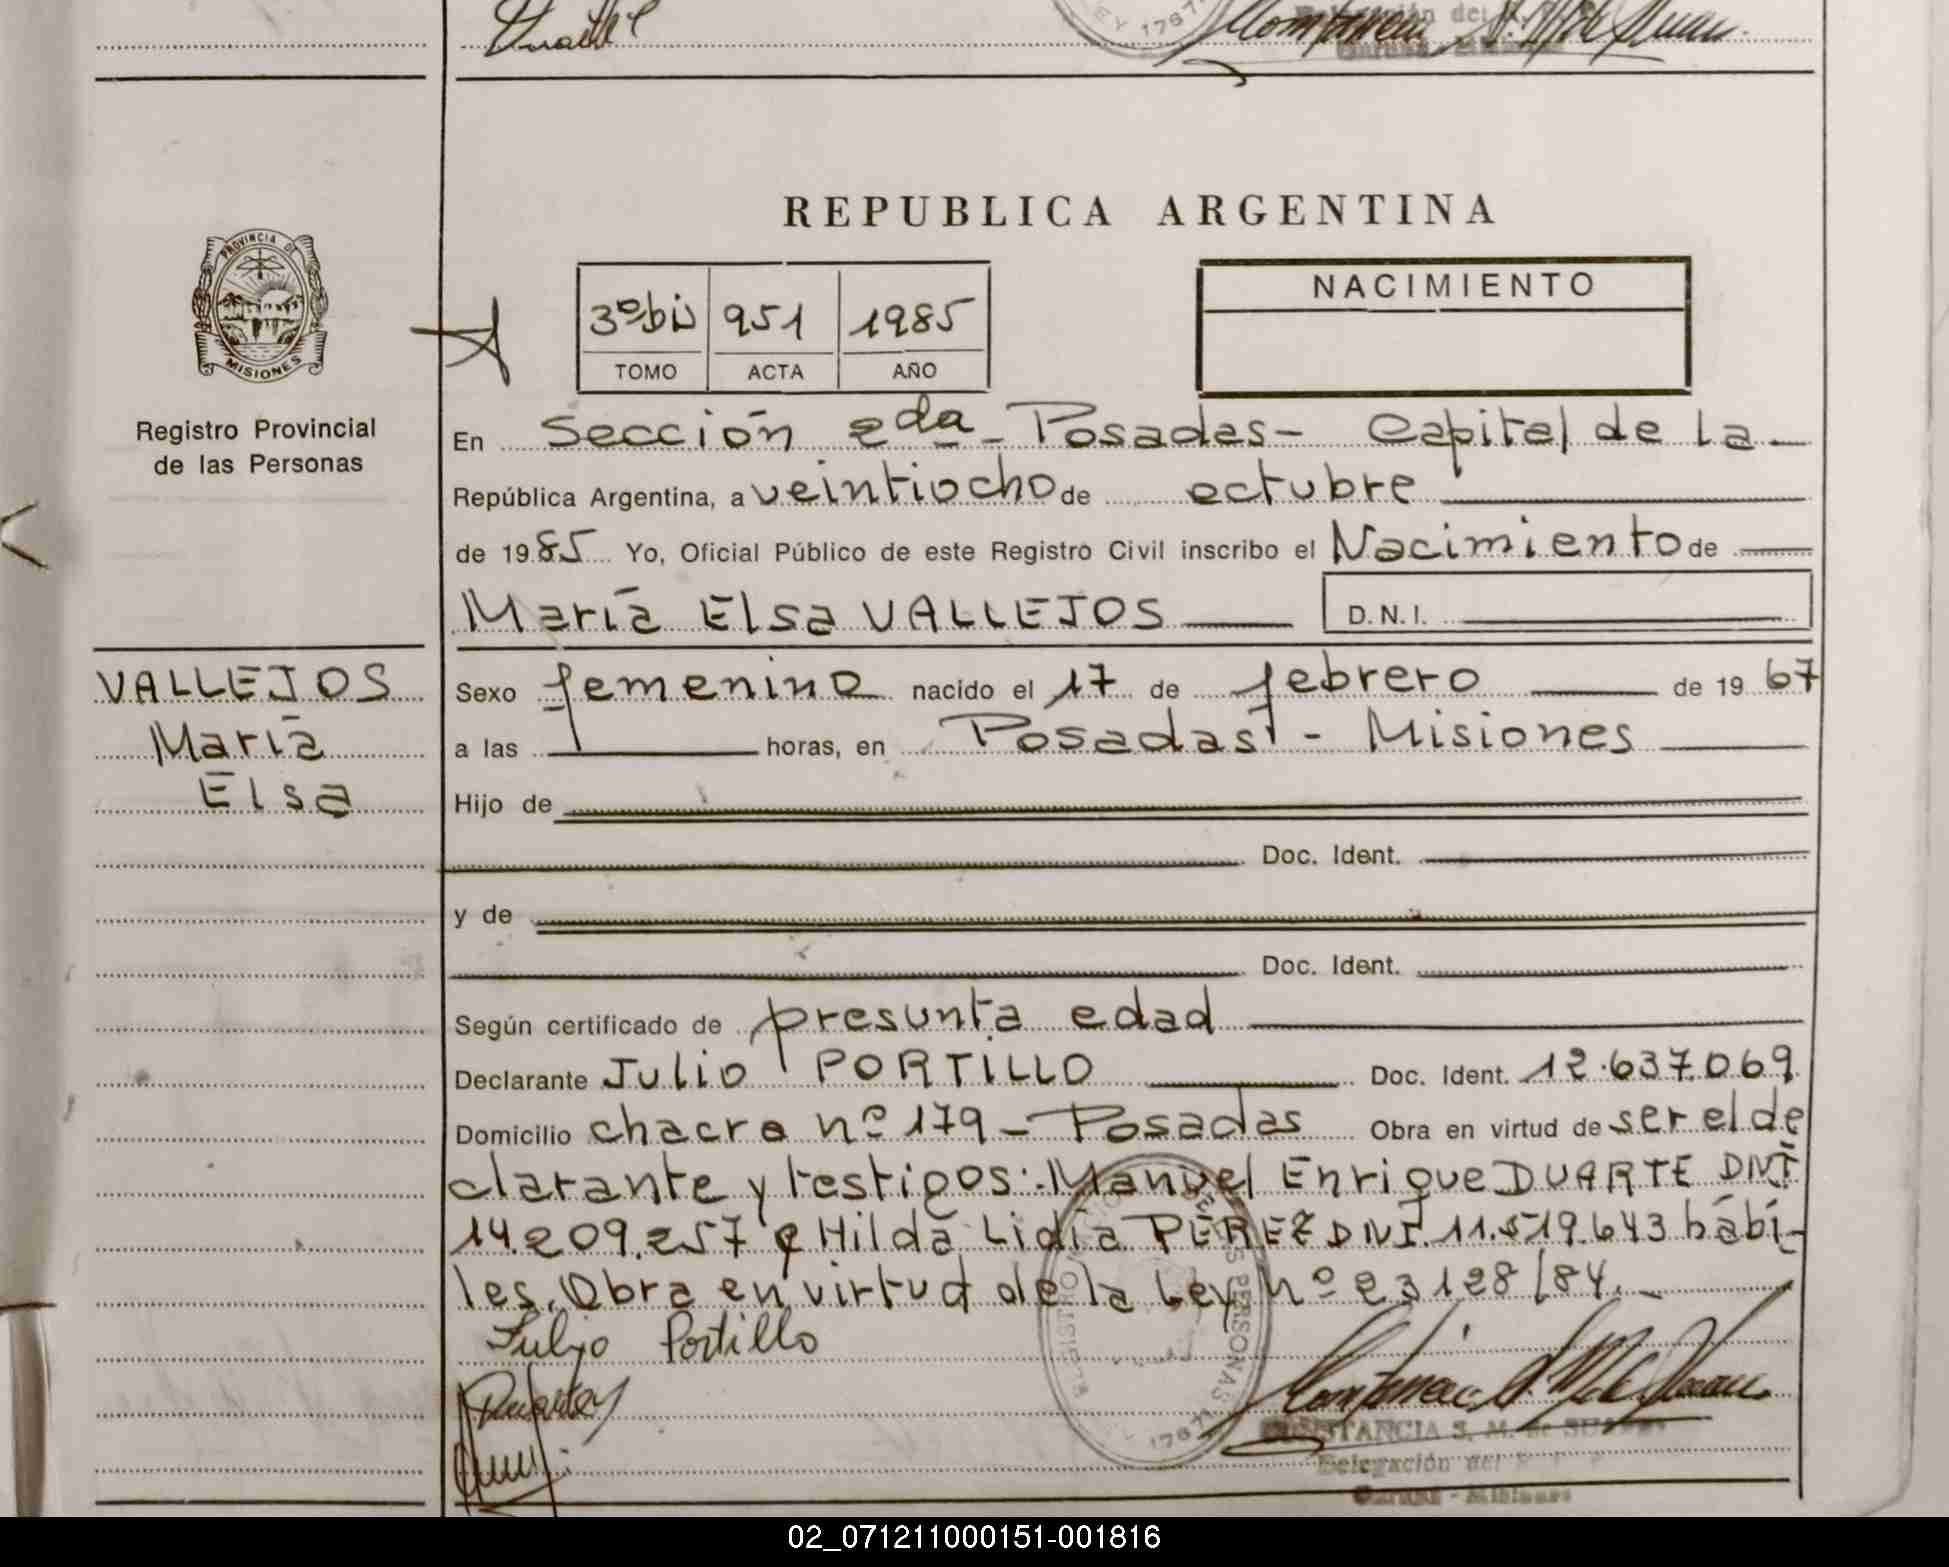 REPUBLICA ARGENTINA
PROVINCIA DE
MISIONES
Registro Provincial
de las Personas
3º bis 951 1985
TOMO ACTA AÑO
NACIMIENTO
En Sección 2da - Posadas - Capital de la
República Argentina, a veintiocho de octubre
de 1985 Yo, Oficial Público de este Registro Civil inscribo el Nacimiento de
María Elsa VALLEJOS D.N.I.
VALLEJOS
María
Elsa
Sexo femenino nacido el 17 de febrero de 1967
a las horas, en Posadas - Misiones
Hijo de
Doc. Ident.
y de
Doc. Ident.
Según certificado de presunta edad
Declarante Julio PORTILLO Doc. Ident. 12.637.069
Domicilio chacra nº 179 - Posadas Obra en virtud de ser el de
clarante y testigos: Manuel Enrique DUARTE DNI
14.209.257 e Hilda Lidia PEREZ DNI. 11.519.643 hábi-
les. Obra en virtud de la Ley nº 23128/84.
Julio Portillo
Duarte
CONSTANCIA S. M. de
Delegación del
- Misiones
02_071211000151-001816